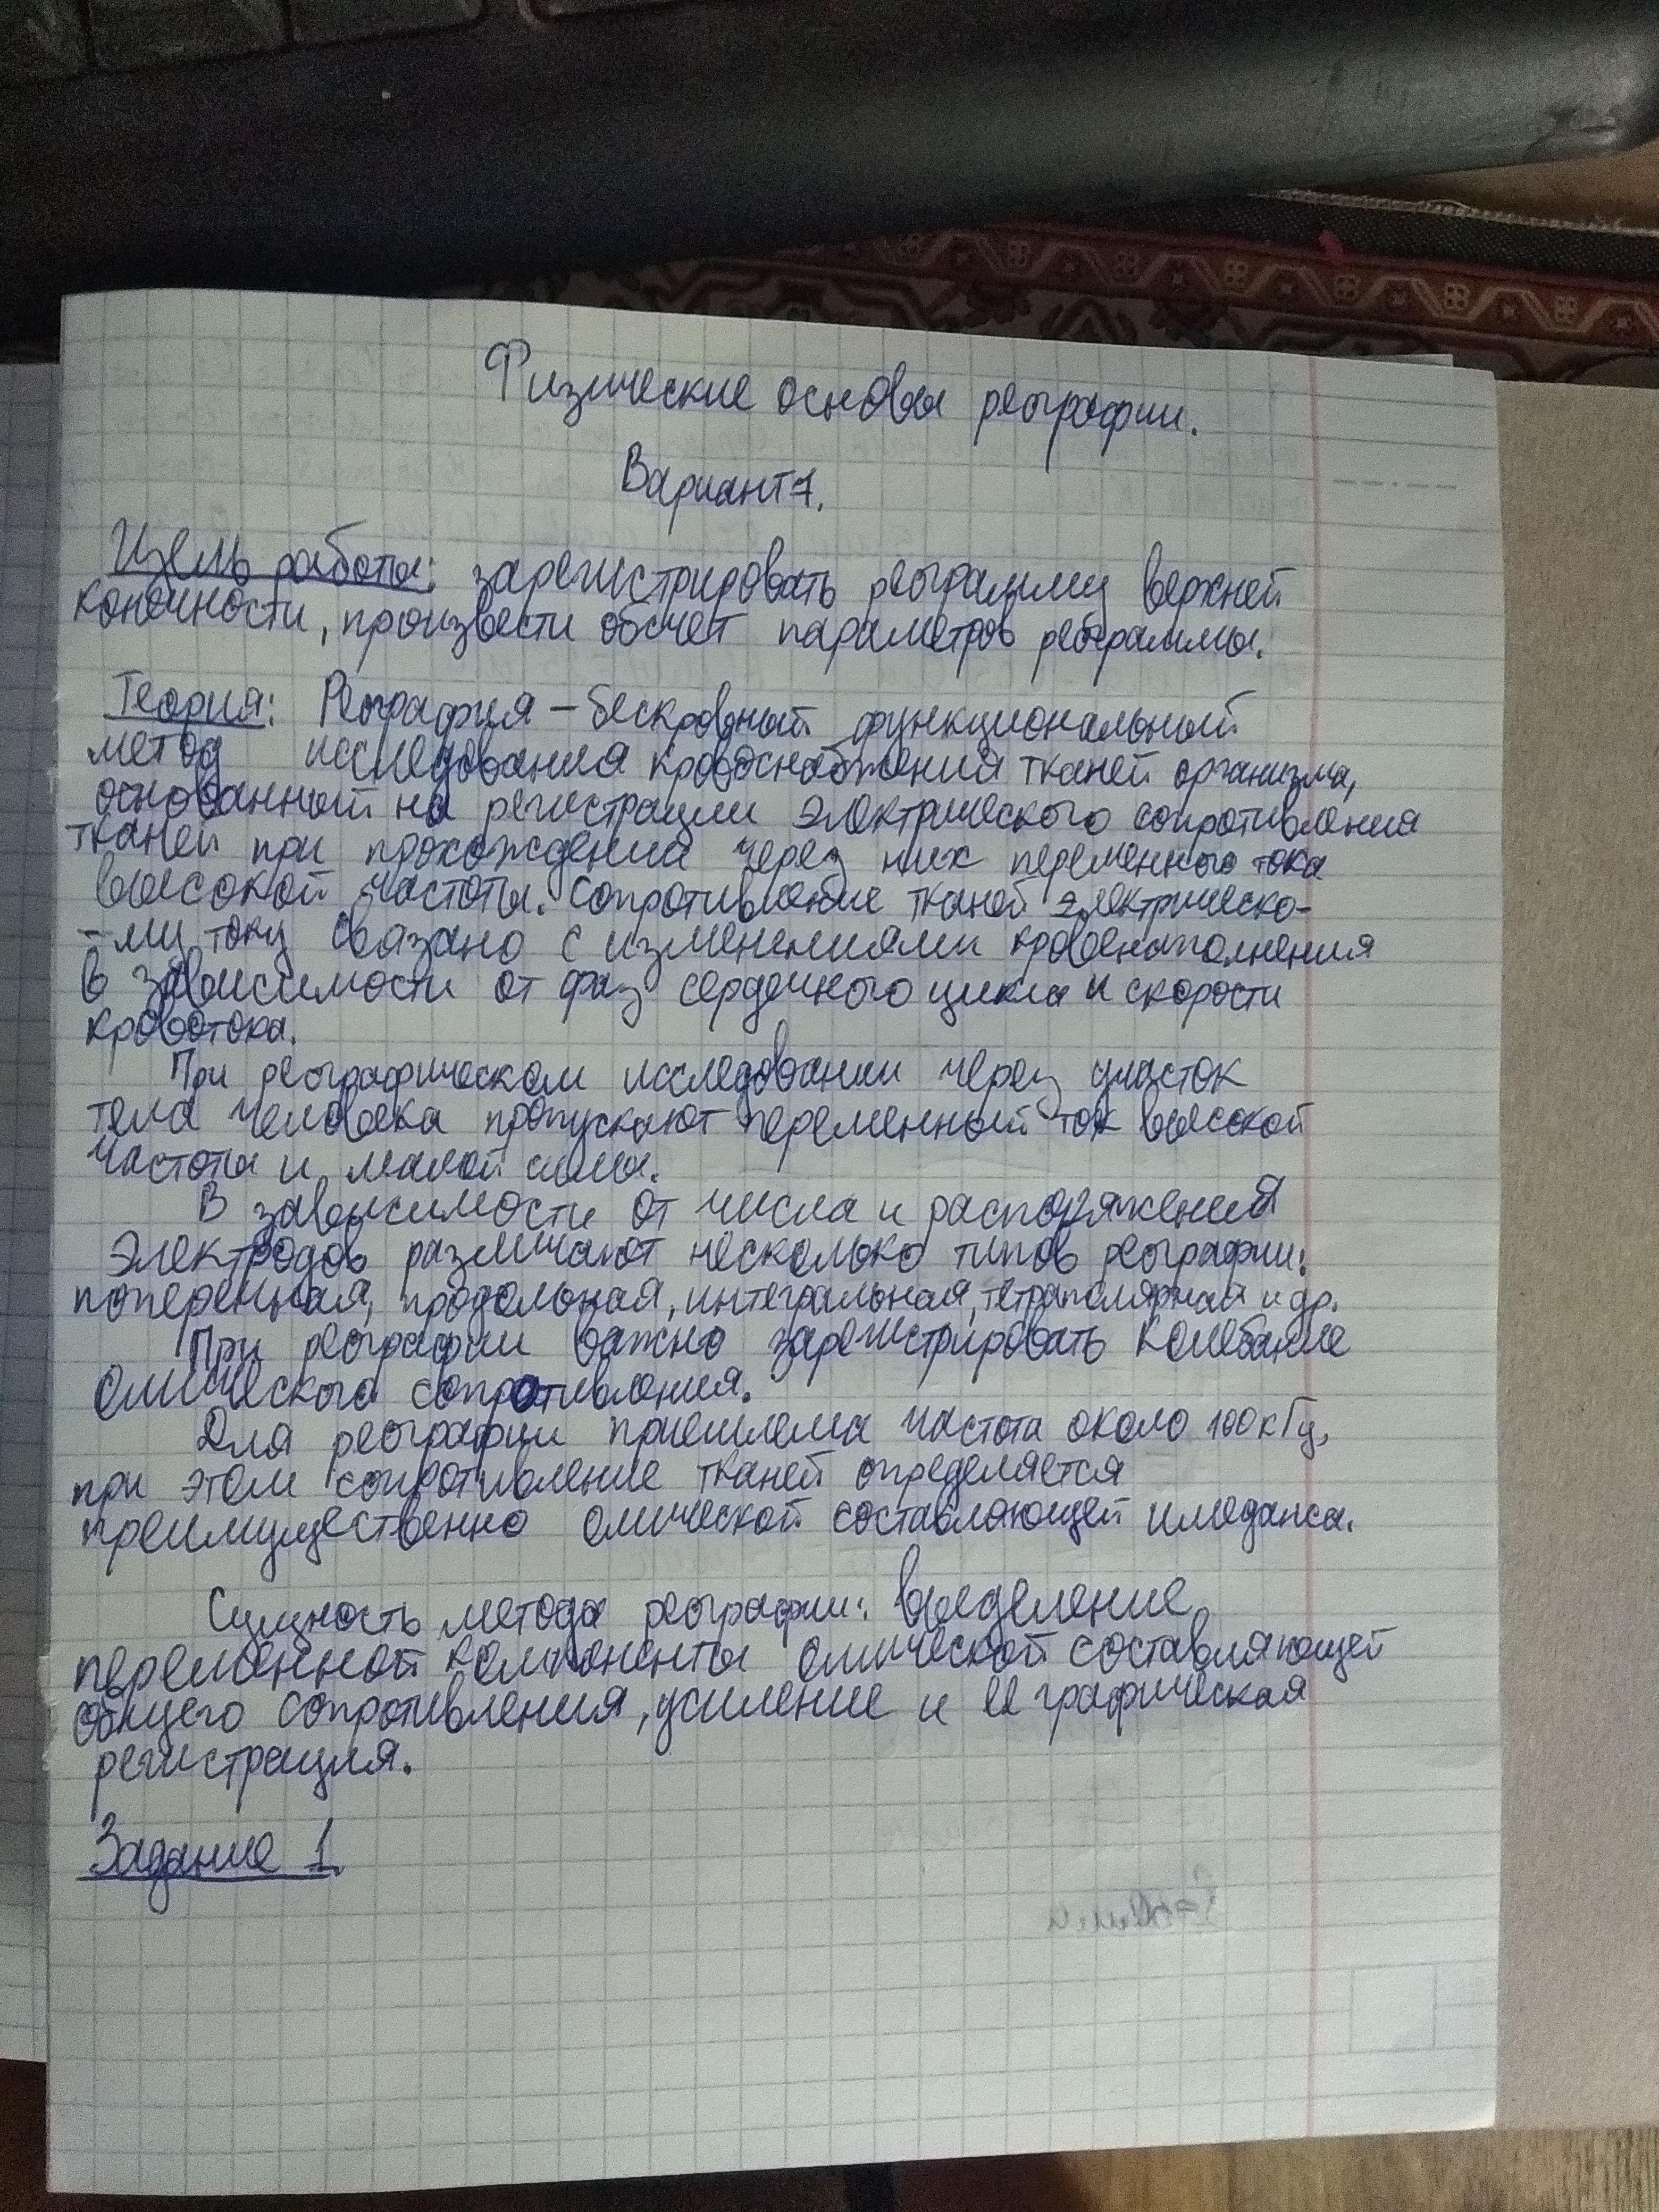 Физические основы реографии.
Вариант 7.
Цель работы: зарегистрировать реограмму верхней
конечности, произвести обсчет параметров реограммы.
Теория: Реография – бескровный функциональный
метод исследования кровоснабжения тканей организма,
основанный на регистрации электрического сопротивления
тканей при прохождении через них переменного тока
высокой частоты. Сопротивление тканей электрическо-
-му току связано с изменениями кровенаполнения
в зависимости от фаз сердечного цикла и скорости
кровотока.
При реографическом исследовании через участок
тела человека пропускают переменный ток высокой
частоты и малой силы.
В зависимости от числа и распоряжения
электродов различают несколько типов реографии:
поперечная, продольная, интегральная, тетраполярная и др.
При реографии важно зарегистрировать колебание
омического сопротивления.
Для реографии приемлема частота около 100 кГц,
при этом сопротивление тканей определяется
преимущественно омической составляющей импеданса.
Сущность метода реографии: выделение
переменной компоненты омической составляющей
общего сопротивления, усиление и её графическая
регистрация.
Задание 1